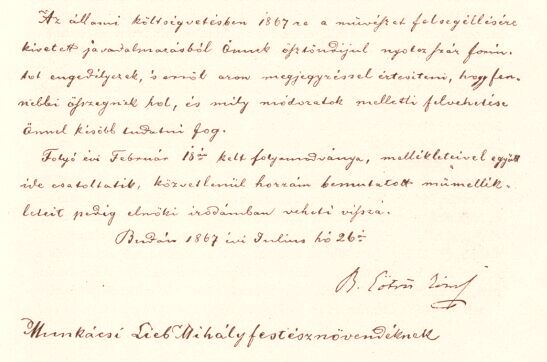 Az állami költségvetésben 1867 re a művészet felsegéllésére
kivetett javadalmazásból Önnek ösztöndijul nyolczszáz forin-
tot engedélyezek, s erről azon megjegyzéssel értesitem, hogy fen-
nebbi összegnek hol, és mily módozatok melletti felvehetése
Önnel később tudatni fog.
Folyó évi Február 18án kelt folyamodványa, mellékleteivel együtt
ide csatoltatik, közvetlenül hozzám bemutatott műmellék-
leteit pedig elnöki irodámban veheti vissza.
Budán 1867 évi Julius hó 26án
B. Eötvös József
Munkácsi Lieb Mihály festésznövendéknek